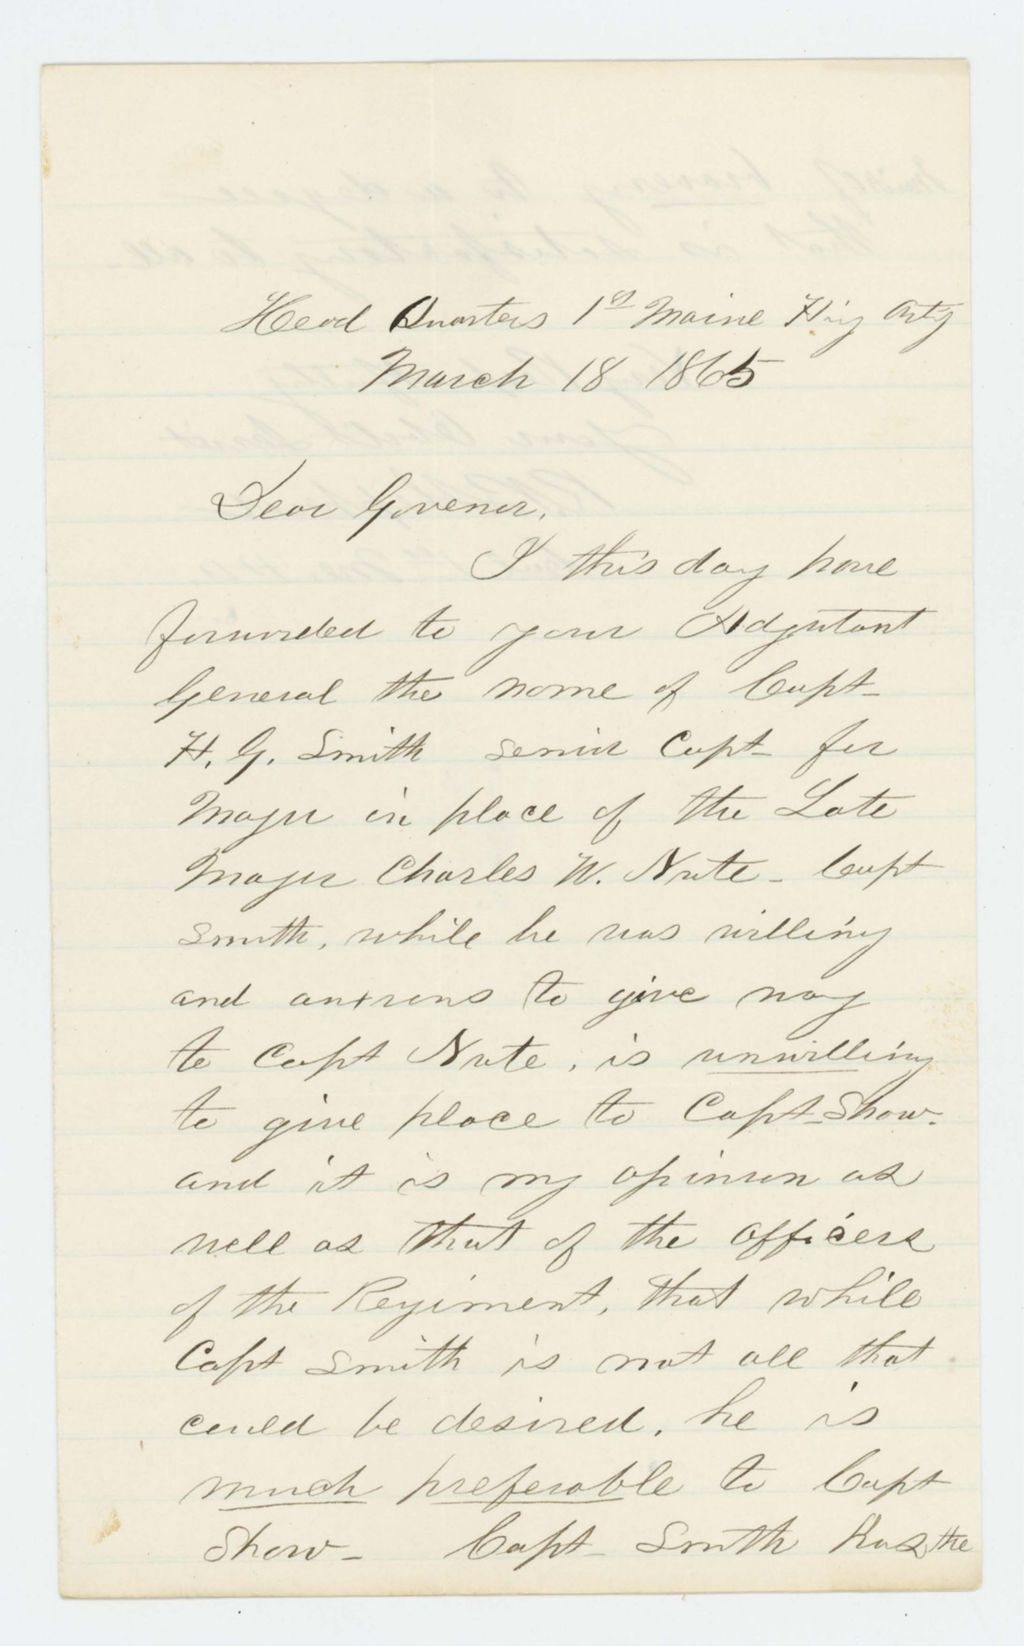 Head Quarters 1st Maine H'vy Art'y
March 18 1865
Dear Govenor,
I this day have
forwarded to your Adjutant
General the name of Capt-
H. G. Smith senior Capt- for
Major in place of the Late
Major Charles W. Nute- Capt
Smith, while he was willing
and anxious to give way
to Capt Nute, is unwilling
to give place to Capt- Shaw.
and it is my opinion as
well as that of the officers
of the Regiment, that while
Capt Smith is not all that
could be desired, he is
much preferable to Capt
Shaw- Capt- Smith has the